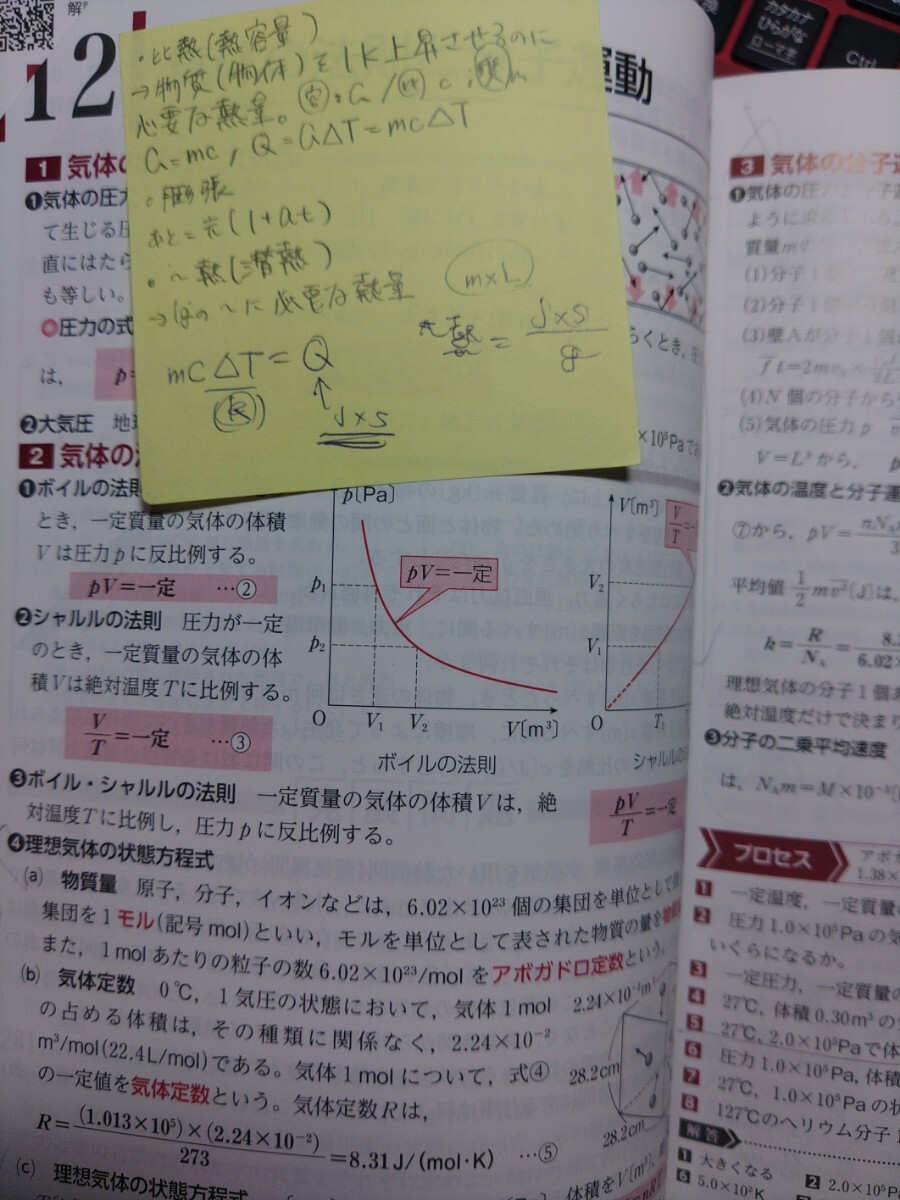 解
12
運動
・比熱(熱容量)
→物質(物体)を1K上昇させるのに
必要な熱量。
C=mc, Q=CΔT=mcΔT
・膨張
あと=元(1+αt)
・〜熱(潜熱)
→1gの〜に必要な熱量
m×L
mcΔT=Q
J×S
=J×S/g
カタカナ
ひらがな
ローマ字
Ctrl
1 気体の
❶気体の圧力
て生じる圧
直にはたら
も等しい。
◎圧力の式
は、 p=
❷大気圧 地球
らくとき，圧
×10⁵Paで
2 気体の法
❶ボイルの法則
とき，一定質量の気体の体積
Vは圧力pに反比例する。
pV=一定 …②
❷シャルルの法則 圧力が一定
のとき，一定質量の気体の体
積Vは絶対温度Tに比例する。
V/T=一定 …③
p〔Pa〕
p₁
p₂
pV=一定
O
V₁
V₂
V〔m³〕
ボイルの法則
V〔m³〕
V₂
V₁
O
T₁
V/T=一
シャルルの
❸ボイル・シャルルの法則 一定質量の気体の体積Vは，絶
対温度Tに比例し，圧力pに反比例する。
pV/T=一定
❹理想気体の状態方程式
(a) 物質量 原子，分子，イオンなどは，6.02×10²³個の集団を単位として
集団を1モル(記号mol)といい，モルを単位として表された物質の量を
また，1molあたりの粒子の数6.02×10²³/molをアボガドロ定数という。
(b) 気体定数 0℃，1気圧の状態において，気体1mol
の占める体積は，その種類に関係なく，2.24×10⁻²
m³/mol(22.4L/mol)である。気体1molについて，式④
の一定値を気体定数という。気体定数Rは，
R=(1.013×10⁵)×(2.24×10⁻²)/273=8.31J/(mol・K) …⑤
(c) 理想気体の状態方程式
体積をV〔m³〕，
28.2cm
28.2cm
3 気体の分子運
❶気体の圧力
質量mの
(1)分子1個
(2)分子1個
(3)壁Aが分子1個
(4)N個の分子から
(5)気体の圧力p
V=L³から， p
❷気体の温度と分子運
⑦から，pV=
平均値
k=R/N_A=
理想気体の分子1個あ
絶対温度だけで決まり
❸分子の二乗平均速度
は，N_Am=M×10⁻³
プロセス
アボガ
1.38×
1 一定温度，一定質量の
2 圧力1.0×10⁵Paの気
いくらになるか。
3 一定圧力，一定質量の
4 27℃，体積0.30m³の
5 27℃，2.0×10⁵Paで体
6 圧力1.0×10⁵Pa，体積
7 27℃，1.0×10⁵Paの状
8 127℃のヘリウム分子1
解答
1 大きくなる
2 2.0×10⁵P
6 5.0×10²K